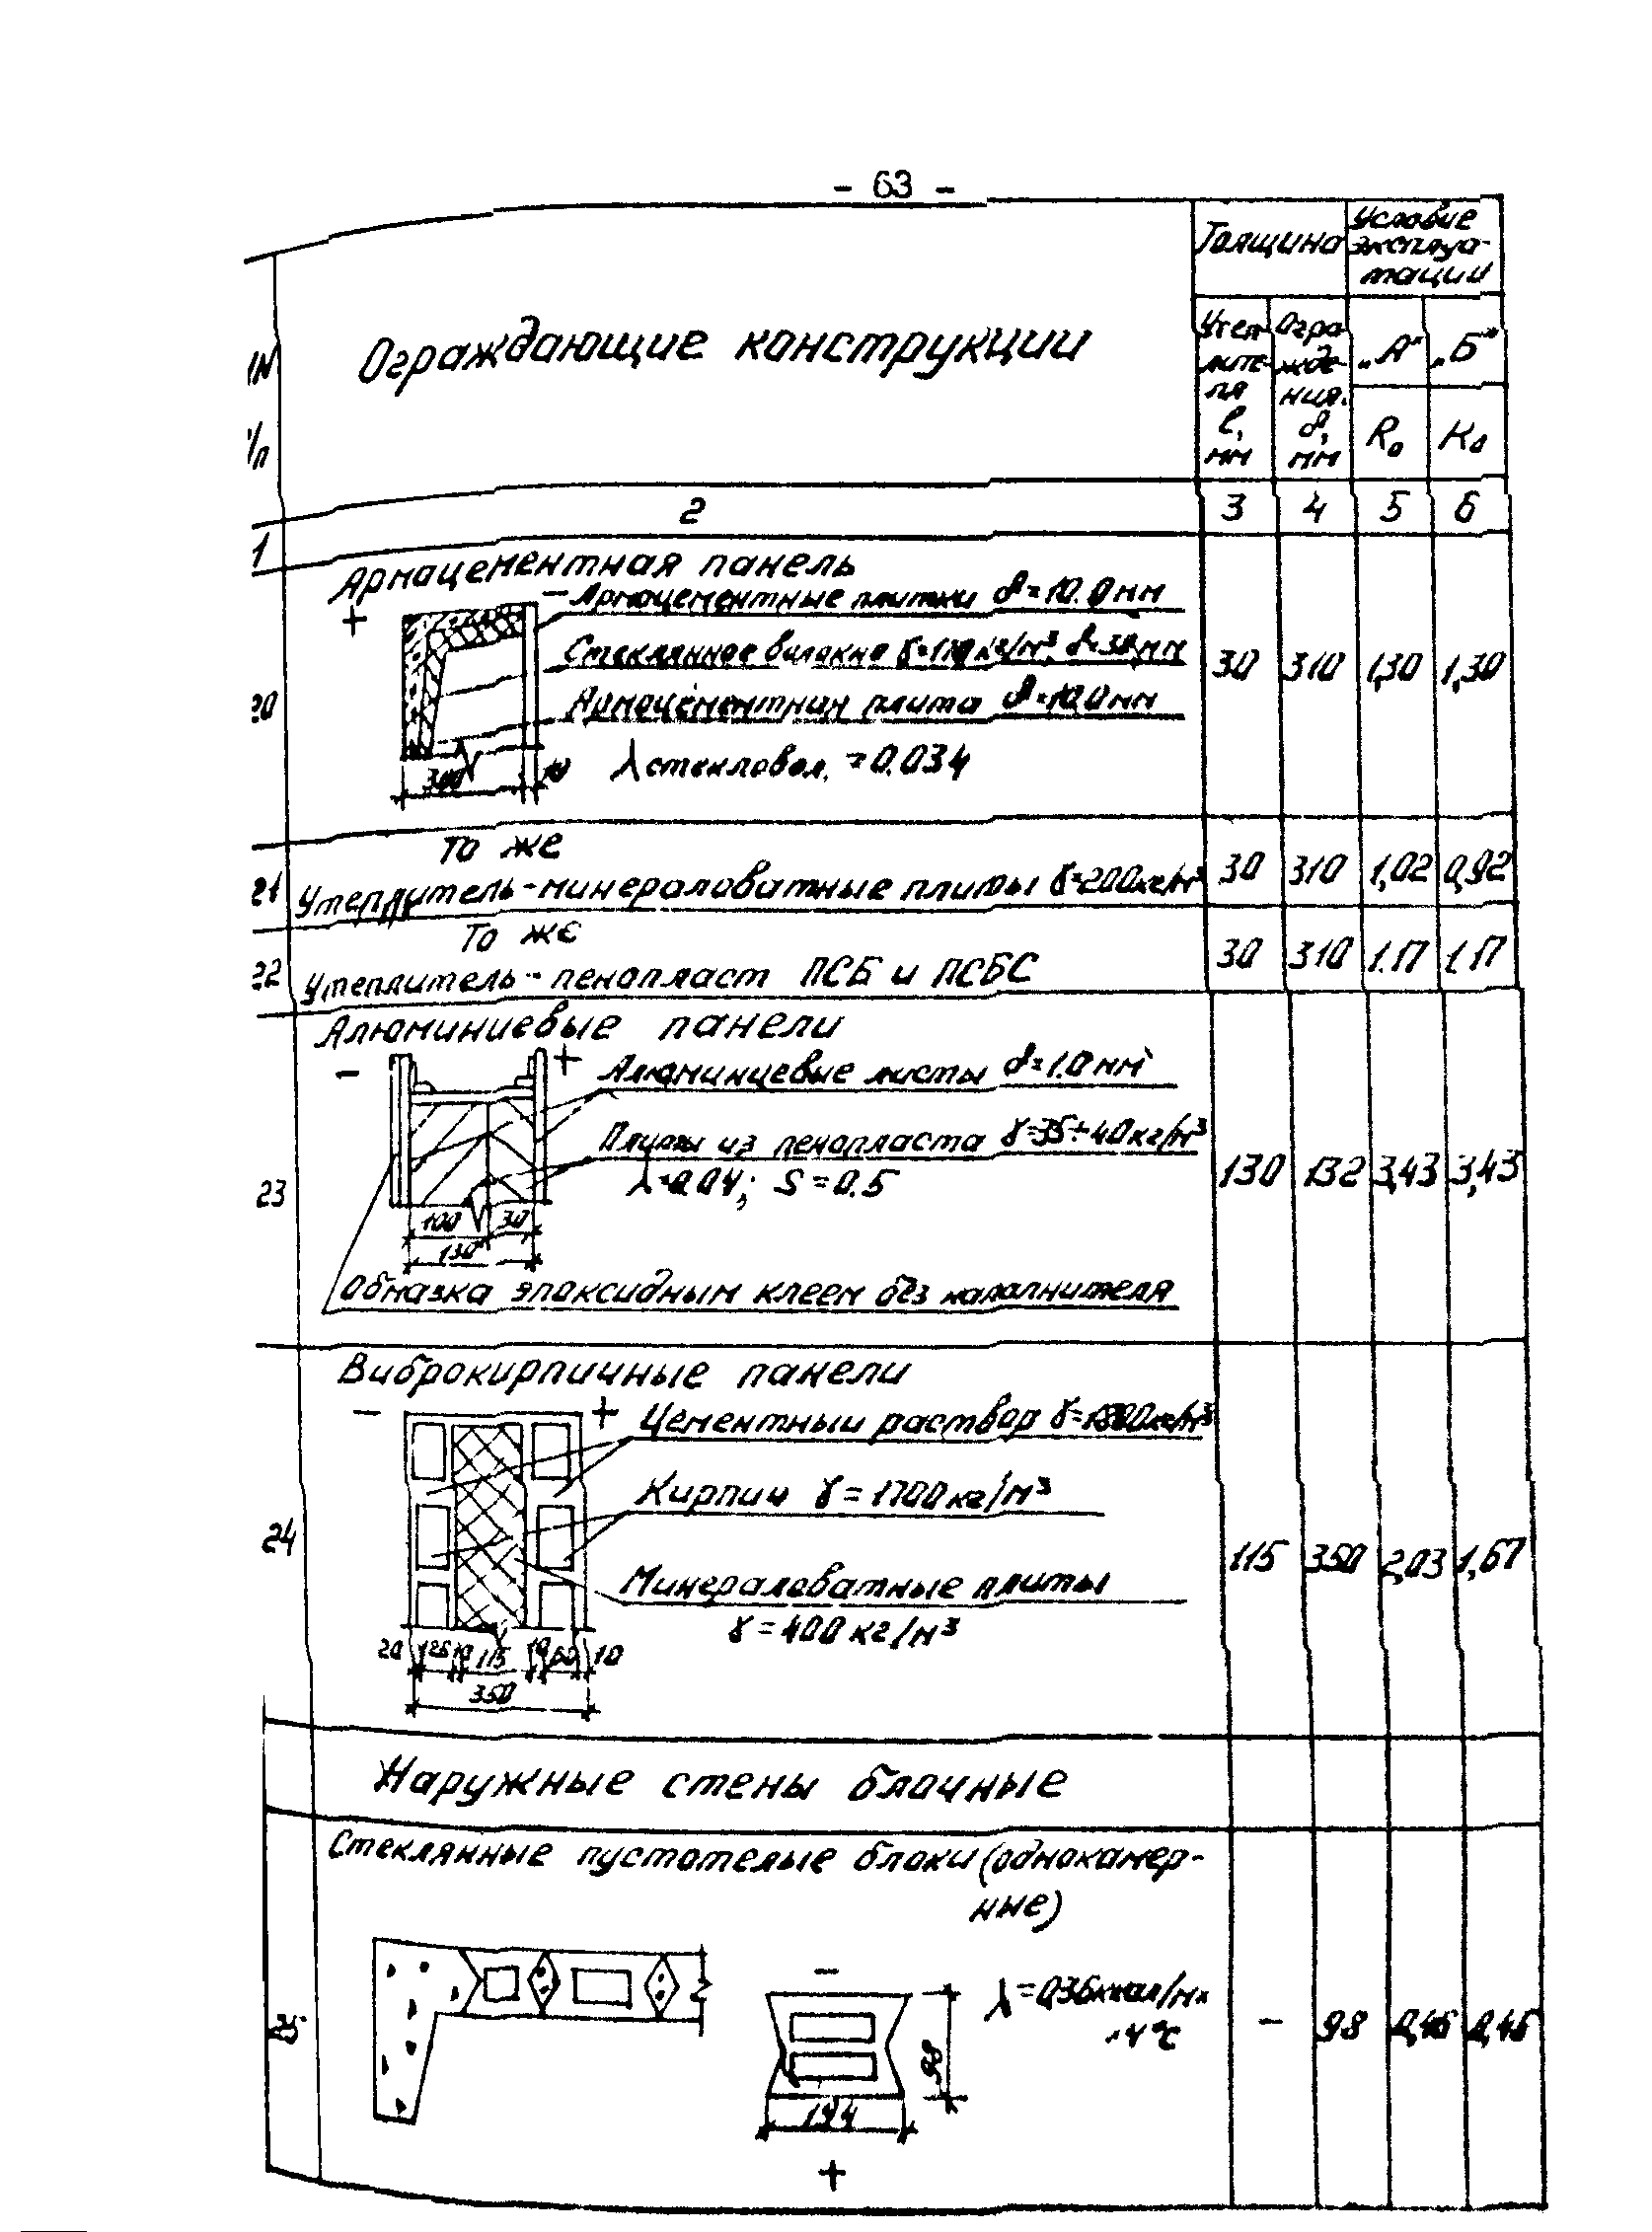 - 63 -
Толщина
Условие
эксплуа-
тации
№
п/п
Ограждающие конструкции
Утеп
лите-
ля
ℓ,
мм
Огра
жде-
ния.
δ,
мм
„А"
„Б"
R₀
R₀
1 2 3 4 5 6
Армацементная панель
+ -
Армоцементные плитки δ=10.0мм
Стеклянное волокно γ= кг/м³, δ=30,мм
Армоцементная плита δ=10,0мм
λ стекловол. =0.034
300
20 30 310 1,30 1,30
То же
21 Утеплитель-минераловатные плиты γ=200кг/м³ 30 310 1,02 0,92
То же
22 Утеплитель-пенопласт ПСБ и ПСБС 30 310 1.17 1,17
Алюминиевые панели
- +
Алюминиевые листы δ=1.0мм
Плиты из пенопласта γ=35÷40кг/м³
λ=0.04; S=0.5
100 30
130
Обмазка эпоксидным клеем без наполнителя
23 130 132 3,43 3,43
Виброкирпичные панели
- +
Цементный раствор γ=1800кг/м³
Кирпич γ=1700кг/м³
Минераловатные плиты
γ=400кг/м³
20 125 10 115 10 60 10
350
24 115 350 2,03 1,67
Наружные стены блочные
Стеклянные пустотелые блоки (однокамер-
ные)
-
λ=0,36ккал/м×
·ч°С
98
194
+
25 - 98 0,46 0,46